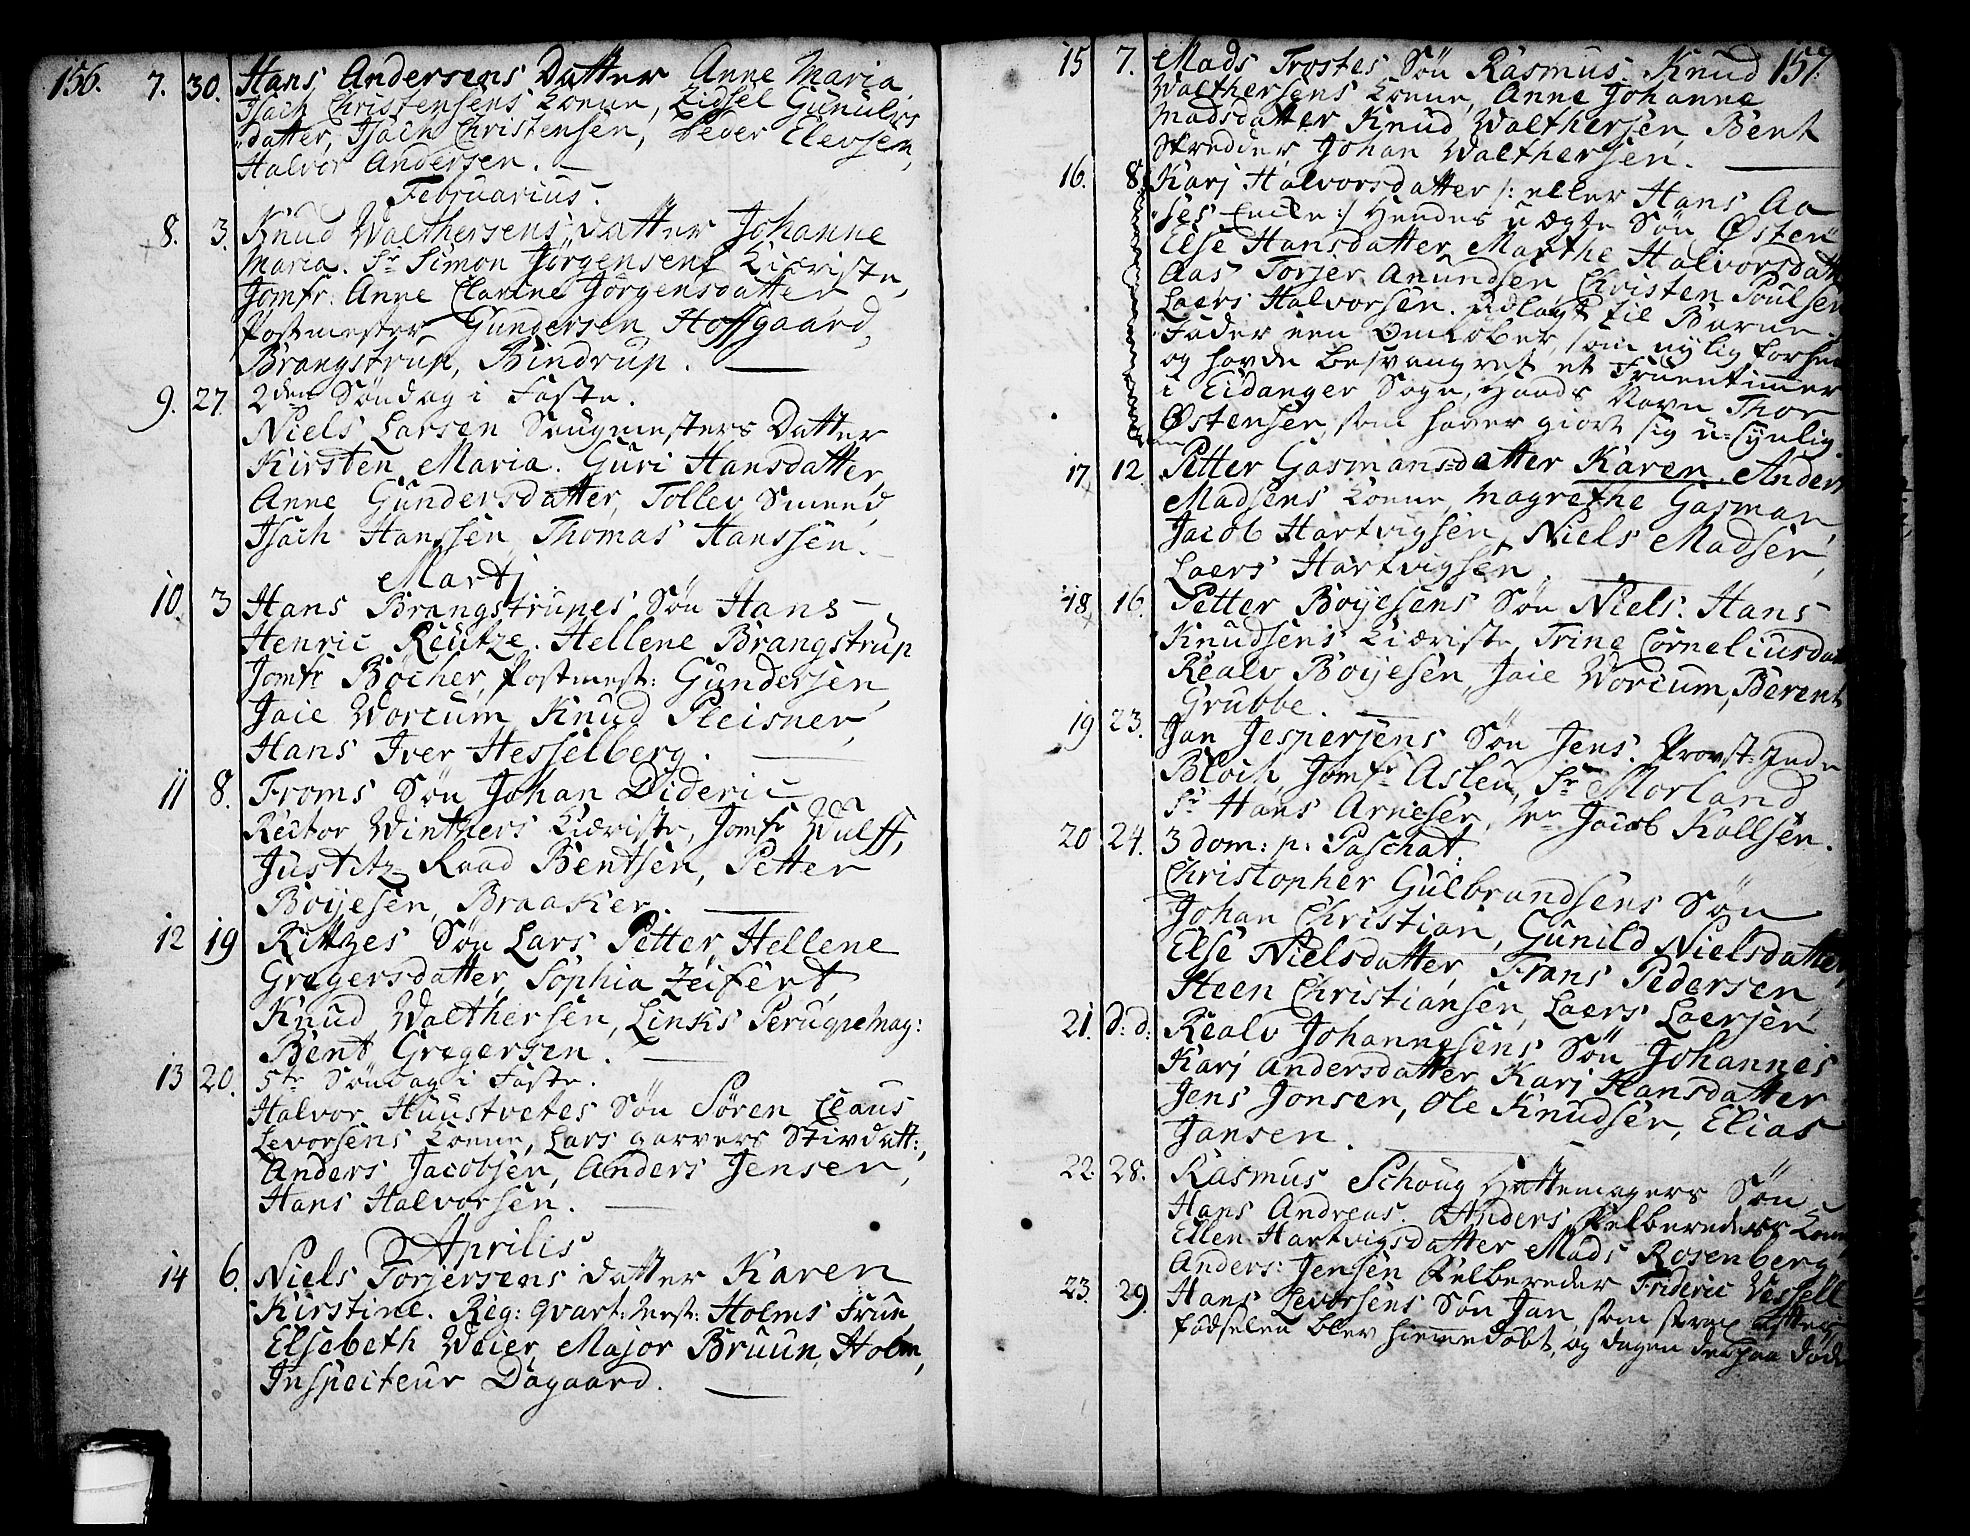 156. 7. 30. Hans Andersens Datter Anne Maria
Isach Christensens Kone, Zidsel Gunulfs
datter, Isach Christensen, Peder Elevsen,
Halvor Andersen.
Februarius.
8. 3. Knud Walthersens datter Johanne
Maria. Sr Simon Jörgensens Kiæriste,
Jomfr. Anne Clarine Jörgensdatter
Postmester Gundersen Hoffgaard,
Brangstrup, Bindrup.
9. 27. 2den Söndag i Faste.
Niels Larsen Saugmesters Datter
Kirsten Maria. Guri Hansdatter
Anne Gundersdatter, Tollev Smeed,
Isach Hanssen Thomas Hanssen.
Martj
10. 3 Hans Brangstrupes Sön Hans
Henric Reutze. Hellene Brangstrup
Jomfr Böcher, Postmest: Gundersen
Jaie Worcum, Knud Pleisner,
Hans Iver Hesselberg.
11 8. Froms Sön Johan Dideric
Rector Winthers Kiæriste, Jomfr Wulff,
Justitz Raad Bentsen, Petter
Boijesen, Braaker.
12 19 Ritzes Sön Lars Petter, Hellene
Gregersdatter, Sophia Zeifert,
Knud Walthersen, Links Peruqvemag:
Bent Gregersen.
13 20. 5te Söndag i Faste.
Halvor Huustvetes Sön Sören Claus
Levorsens Kone, Lars garvers Stivdatt:,
Anders Jacobsen, Anders Jensen,
Hans Halvorsen.
Aprilis
14 6. Niels Torjersens datter Karen
Kirstine. Reg: qvart: Mest: Holms Frue
Elsebeth Weier, Major Bruun, Holm,
Inspecteur Dagaard.
15 7. Mads Trostes Sön Rasmus. Knud 157.
Walthersens Kone, Anne Johanne
Madsdatter Knud Walthersen, Bent
Skredder, Johan Walthersen.
16. 8. Karj Halvorsdatter /: eller Hans Aa
ses Encke :/ Hendes uægte Sön Østen
Else Hansdatter, Marthe Halvorsdatt
Aas Torjer Anundsen Christen Poulsen
Laers Halvorsen. Udlagt til Barne
Fader een Omlöber, som nylig forhen
og havde besvangret et Fruentimmer
i Eidanger Sogn, Hands Navn Thor
Östensen, som haver giort sig u-synlig.
17 12 Petter Gasmans datter Karen. Anders
Madsens Kone, Magrethe Gasman
Jacob Hartvigsen, Niels Madsen,
Laers Hartvigsen.
18. 16. Petter Boijesens Sön Niels. Hans
Knudsens Kiæriste, Trine Corneliusdatt
Realv Boijesen, Jaie Worcum, Berent
Grubbe.
19 23. Jan Jespersens Sön Jens. Provst-Inde
Bloch, Jomfr Aslew, Sr Morland
Sr Hans Arnesen, Mr Jacob Kallsen.
20 24. 3 dom: p: Paschat:
Christopher Gulbrandsens Sön
Johan Christian, Gunild Nielsdatter,
Else Nielsdatter, Frans Pedersen,
Steen Christiansen, Laers Laersen
21. d: d: Realv Johannesens Sön Johannes
Karj Andersdatter, Karj Hansdatter
Jens Jonsen, Ole Knudsen, Elias
Jansen.
22. 28. Rasmus Schoug Hattemagers Sön
Hans Andreas. Anders Felbereders Kone
Ellen Hartvigsdatter Mads Rosenberg
Anders: Jensen Felbereder Frideric Wessell
23. 29. Hans Levorsens Sön Jan, som strax efter
födselen blev hiemmedöbt, og dagen derpaa döde